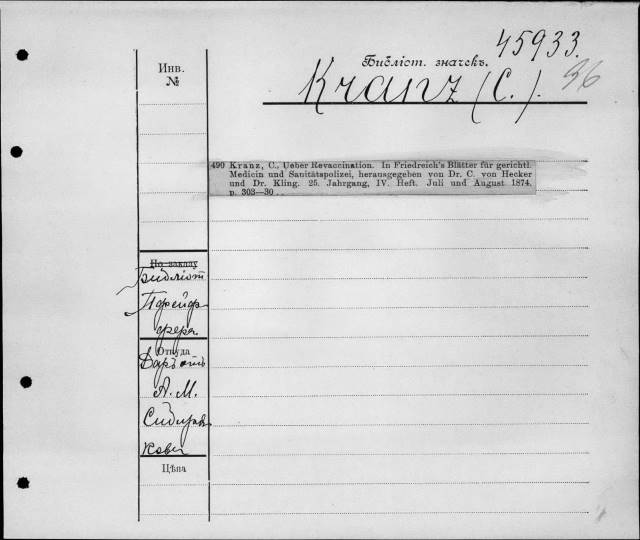 45933.
Инв.
№
Библіот. значекъ.
Kranz (C.).
36
490 Kranz, C., Ueber Revaccination. In Friedreich's Blätter für gerichtl.
Medicin und Sanitätspolizei, herausgegeben von Dr. C. von Hecker
und Dr. Kling. 25. Jahrgang, IV. Heft. Juli und August 1874.
p. 303—30 . .
По закладу
Библіот
Пфейф
фера
Откуда
Даръ отъ
А. М.
Сибиря
кова
Цѣна